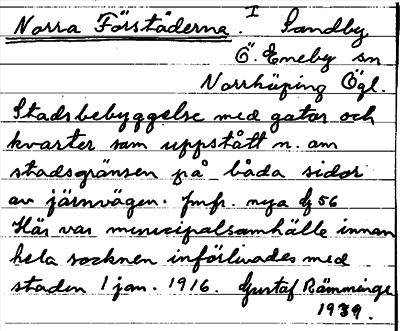 Norra Förstäderna. I Sandby
Ö. Eneby sn
Norrköping Ögl.
Stadsbebyggelse med gator och
kvarter som uppstått n. om
stadsgränsen på båda sidor
av järnvägen. Jmfr. nya Eg 56
Här var municipalsamhälle innan
hela socknen införlivades med
staden 1 jan. 1916. Gustaf Rämminge
1939.